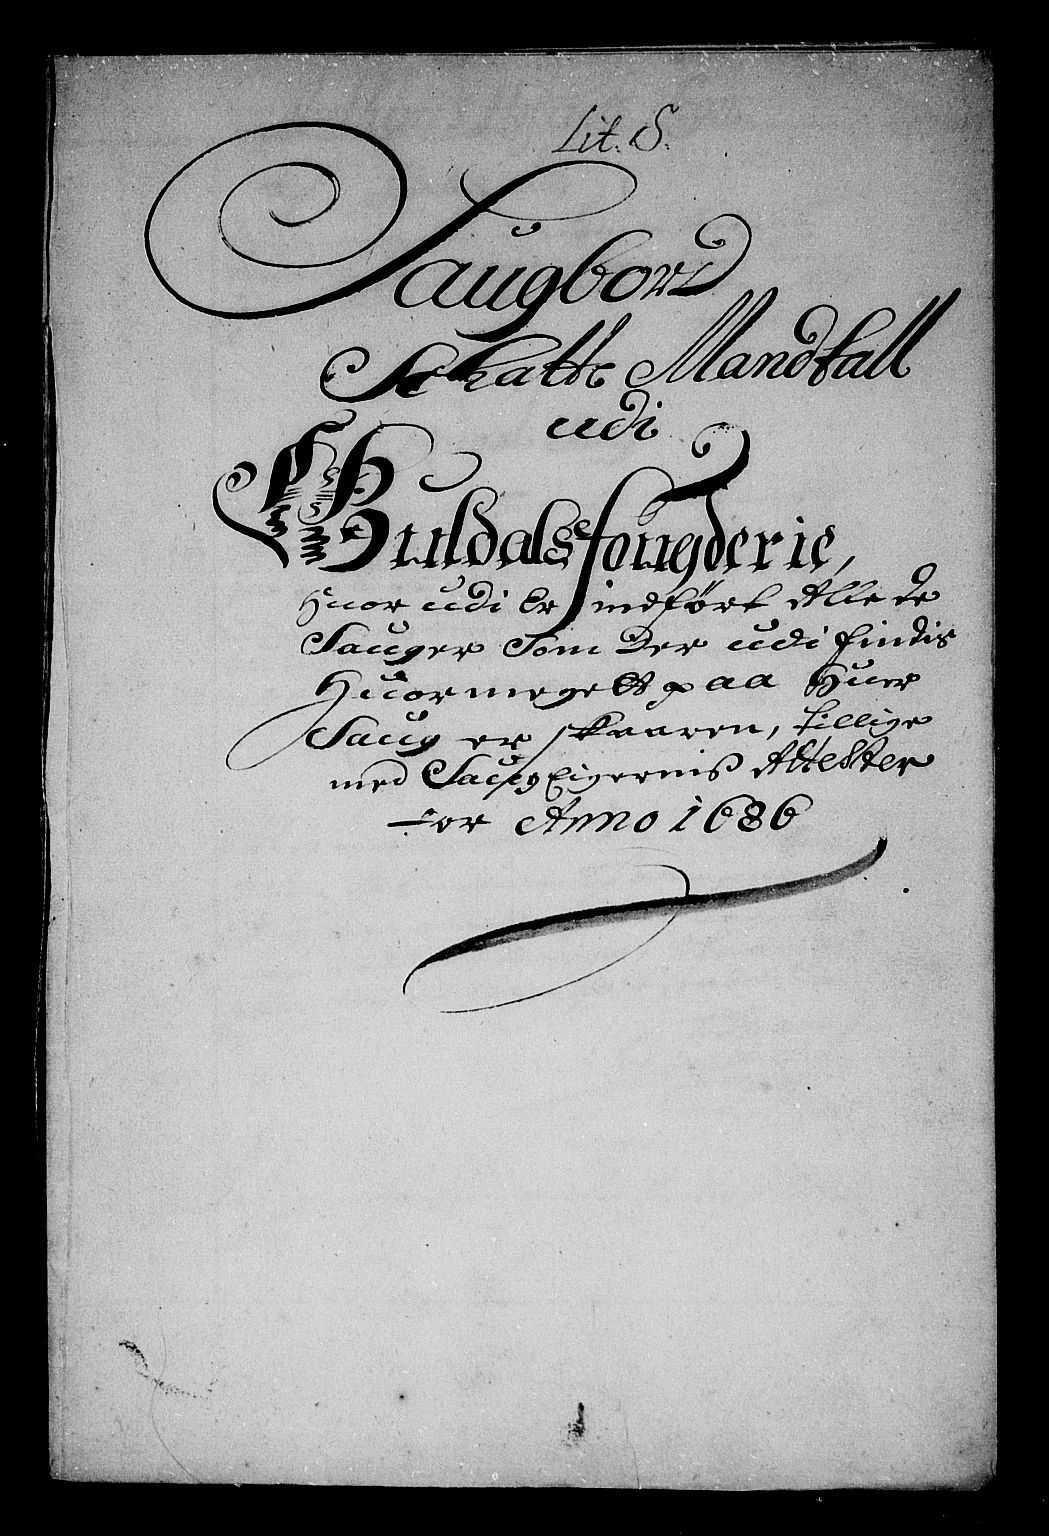 Lit. S.
Saugbord
Schatte Mandtall
udi
Guldals fougderie,
Huor udi Er indført Alle de
Sauger Som Der udi findis
Huormegett paa Huer
Saug er skaaren, tillige
med SaugEigernis Attester
for Anno 1686